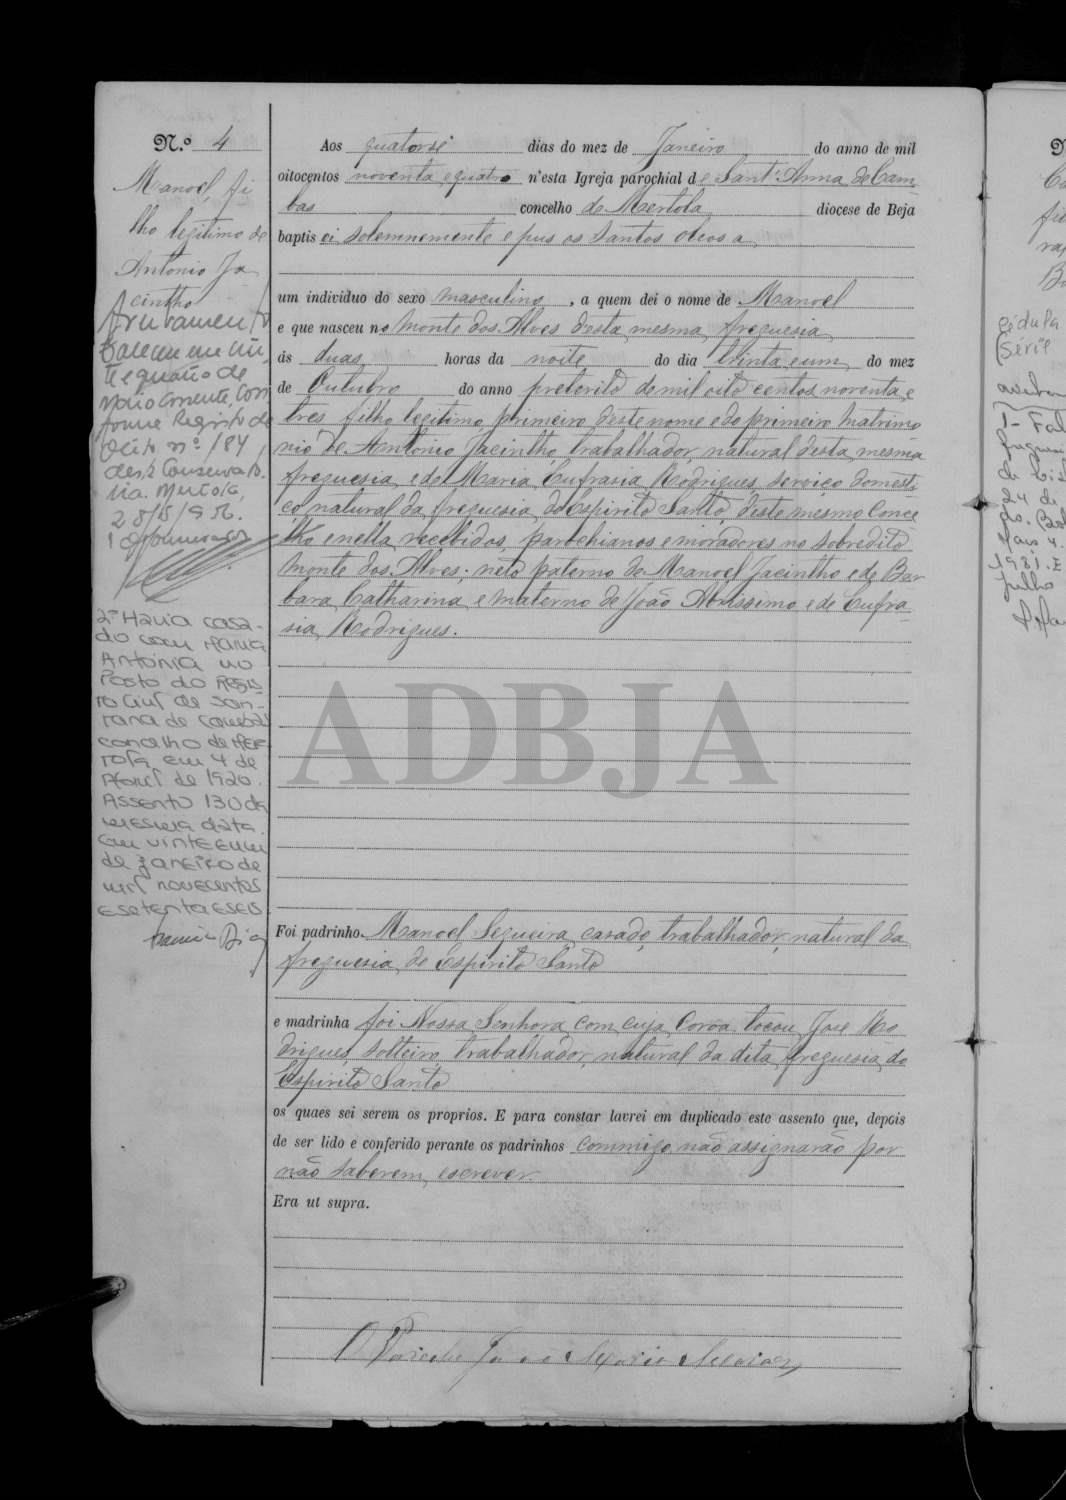 N.º 4
Manoel, fi
lho legitimo de
Antonio Ja
cintho
Faleceu em vin
te e quatro de
Maio corrente, con
forme Registo de
obito nº 184
desta Conservató
ria. Mertola,
28/5/956.
2º Havia casa-
do com Maria
Antónia no
Posto do Regis-
to Civil de San-
tana de Cambas
concelho de Mér-
tola em 4 de
Abril de 1920.
Assento 130 da
mesma data.
Em vinte e um
de Janeiro de
mil novecentos
e setenta e seis
Aos quatorse dias do mez de Janeiro do anno de mil
oitocentos noventa e quatro n'esta Igreja parochial de Sant'Anna de Cam
bas concelho de Mertola diocese de Beja
baptisei solemnemente e pus os santos oleos a
um individuo do sexo masculino, a quem dei o nome de Manoel
e que nasceu no Monte dos Alves desta mesma freguesia
ás duas horas da noite do dia trinta e um do mez
de Outubro do anno preterito de mil oito centos noventa e
tres filho legitimo primeiro deste nome e do primeiro matrimo
nio de Antonio Jacintho, trabalhador, natural desta mesma
freguesia e de Maria Eufrasia Rodrigues, serviço domesti
co, natural da freguesia do Espirito Santo, deste mesmo Conce
lho e nella recebidos, parochianos e moradores no sobredito
Monte dos Alves; neto paterno de Manoel Jacintho e de Bar
bara Catharina e materno de João e de Eufra
sia Rodrigues.
ADBJA
Foi padrinho. Manoel Sequeira, casado, trabalhador, natural da
freguesia de Espirito Santo
e madrinha foi Nossa Senhora com cuja Corôa tocou José Ro
drigues, solteiro, trabalhador, natural da dita freguesia do
Espirito Santo
os quaes sei serem os proprios. E para constar lavrei em duplicado este assento que, depois
de ser lido e conferido perante os padrinhos commigo não assignarão por
não saberem escrever.
Era ut supra.
O Parocho João
cédula
Série